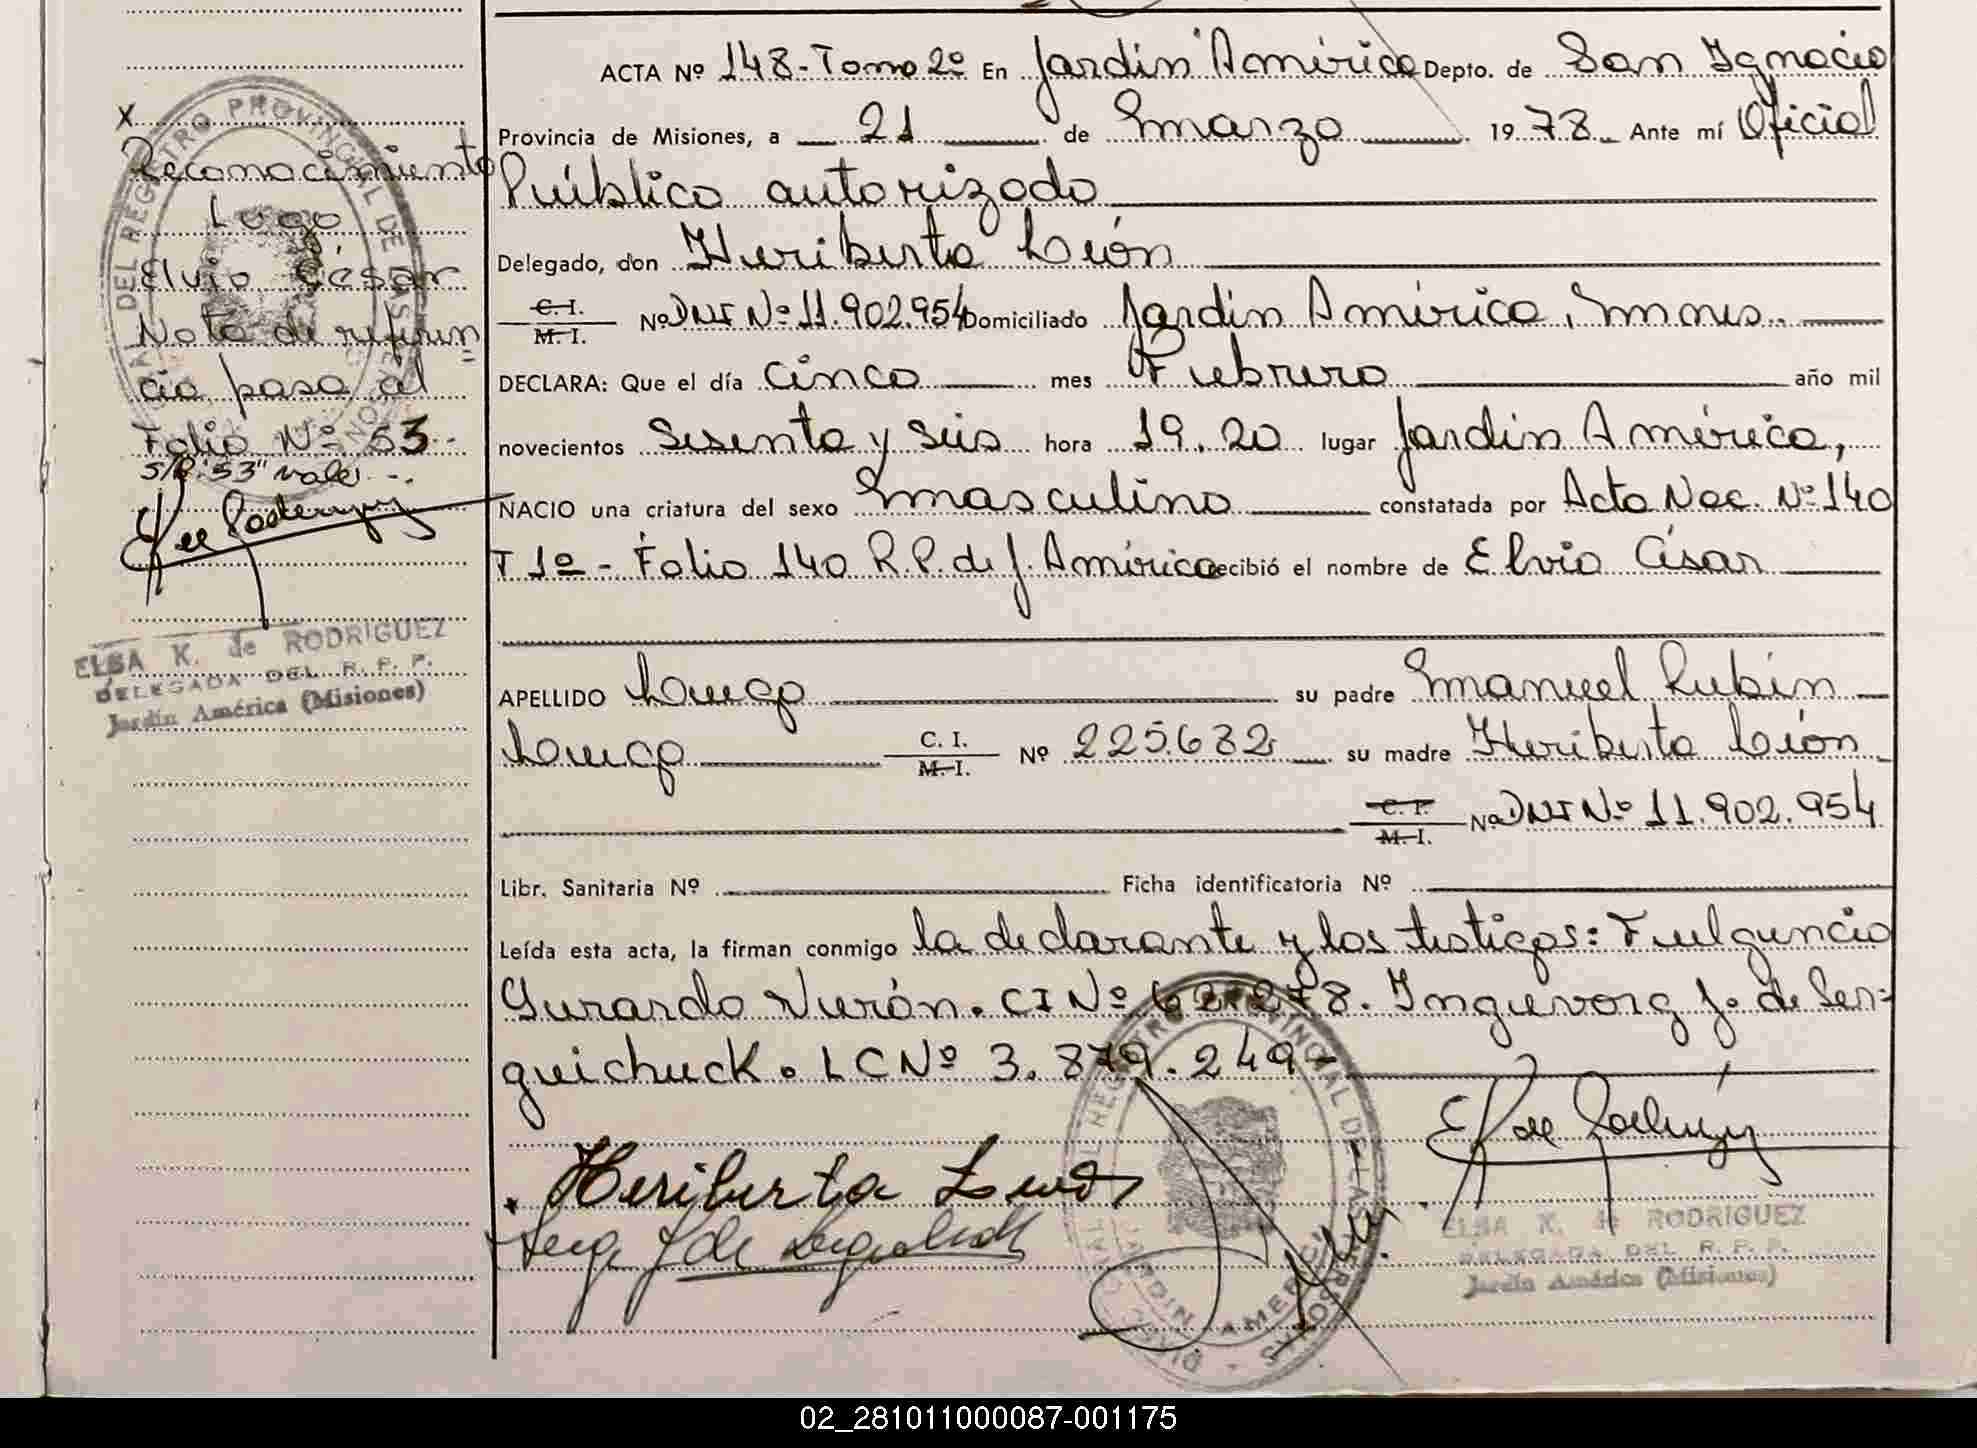 ACTA Nº 148-Tomo 2º En Jardín América Depto. de San Ignacio
Provincia de Misiones, a 21 de marzo 1978 Ante mí Oficial
Público autorizado
Delegado, don Heriberta León
C. I.
M. I. Nº DNI Nº 11.902.954 Domiciliado Jardín América, Mnes.
DECLARA: Que el día cinco mes Febrero año mil
novecientos sesenta y seis hora 19.20 lugar Jardín América,
NACIO una criatura del sexo masculino constatada por Acta Nac. Nº 140
T 1º - Folio 140 R.P. de J. América recibió el nombre de Elvio César
APELLIDO Luego su padre Manuel Rubén
Luego C. I. M. I. Nº 225.632 su madre Heriberta León
C. I. M. I. Nº DNI Nº 11.902.954
Libr. Sanitaria Nº Ficha identificatoria Nº
Leída esta acta, la firman conmigo la declarante y los testigos: Fulguncio
Gerardo Verón. CI Nº 62.278. Inguevorg J. de Ser=
guichuck. LC Nº 3.879.249-
Heriberta
ELSA K. de RODRIGUEZ
DELEGADA DEL R. P. P.
Jardín América (Misiones)
X
Reconocimiento
Lugo
Elvio César
Nota de referen=
cia pasa al
Folio Nº 53-
S/R: "53" vale.-
ELSA K. de RODRIGUEZ
DELEGADA DEL R. P. P.
Jardín América (Misiones)
DEL REGISTRO PROVINCIAL DE LAS PERSONAS
REGISTRO PROVINCIAL DE LAS PERSONAS
JARDIN AMERICA
02_281011000087-001175